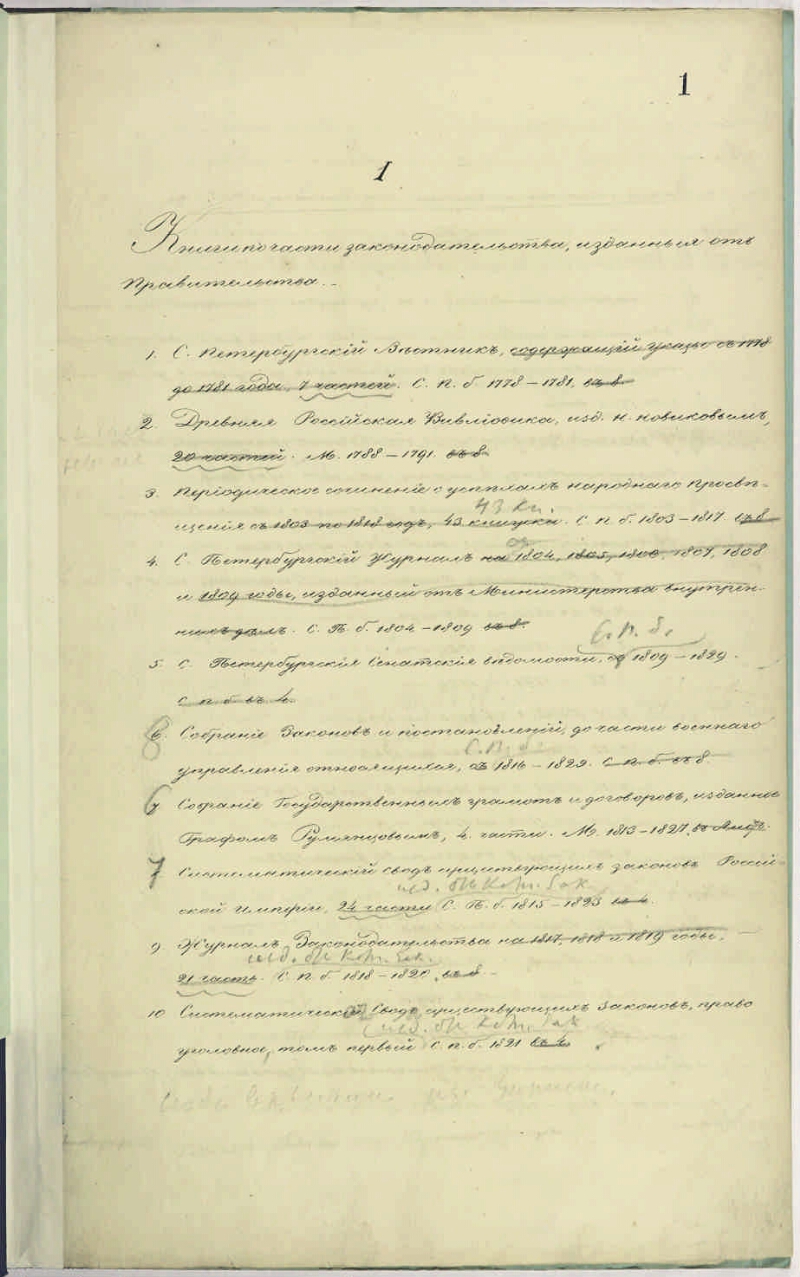 1
I
Книги по части законодательства, изданныя отъ
Правительства.
1. С. Петербургскій Вѣстникъ, содержащій указы съ 1778
до 1781 годы, 7 частей. С. п. б. 1778–1781. въ 8
2. Древняя Россійская Вивліовика, изд. Н. Новиковымъ,
20 частей. М. 1788–1791. въ 8.
3. Періодическое сочиненіе о успѣхахъ народнаго просвѣ-
43 кн.
щенія съ 1803 по 1818 годъ, 43 книжки. С. п. б. 1803–1817. въ 8
4. С. Петербургскій Журналъ на 1804, 1805, 1806, 1807, 1808
и 1809 годы, изданный отъ Министерства внутрен-
нихъ дѣлъ. С. П. б. 1804–1809 въ 8.
С. П. б.
5. С. Петербургскія Сенатскія вѣдомости, съ 1809–1829.
С. п. б. въ 4.
6. Собраніе Законовъ и постановленій, до части военнаго
С. П. б.
управленія относящихся, съ 1816–1822. С. п. б. въ 8
6 Собраніе Государственныхъ грамотъ и договоровъ, изданное
Графомъ Румянцовымъ, 4. части. М. 1813–1827, въ листъ.
7 Систематическій сводъ существующихъ законовъ Россій-
изд. отъ Ком. Зак.
ской Имперіи, 24 части С. П. б. 1815–1823 въ 4.
9. Журналъ Законодательства на 1817, 1818 и 1819 годы.
изд. отъ Ком. Зак.
21 часть. С. п. б. 1818–1820, въ 8
10 Систематической Сводъ существующихъ Законовъ, право
изд. отъ Ком. Зак
уголовное, томъ первый С. п. б. 1821 въ 4.